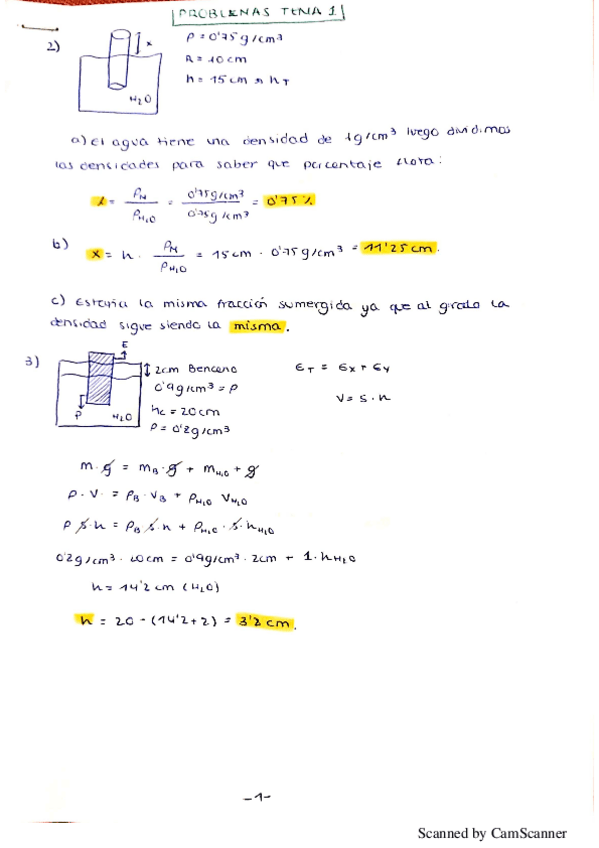 PROBLEMAS TEMA 1
2)
x
H2O
ρ = 0'75 g/cm³
R = 10 cm
h = 15 cm = hT
a) El agua tiene una densidad de 1g/cm³ luego dividimos
las densidades para saber que porcentaje flota:
% = ρN / ρH2O = 0'75g/cm³ / 0'75g/cm³ = 0'75 %
b) x = h · ρN / ρH2O = 15cm · 0'75 g/cm³ = 11'25 cm.
c) Estaría la misma fracción sumergida ya que al girarlo la
densidad sigue siendo la misma.
3)
E
P
H2O
2cm Benceno
0'9g/cm³ = ρ
hc = 20cm
ρ = 0'2g/cm³
ET = Ex + Ey
V = S · h
m · g = mB · g + mH2O + g
ρ · V = ρB · VB + ρH2O VH2O
ρ S · h = ρB S · h + ρH2O · S · hH2O
0'2g/cm³ · 20cm = 0'9g/cm³ · 2cm + 1 · hH2O
h = 14'2 cm (H2O)
h = 20 - (14'2 + 2) = 3'2 cm.
-1-
Scanned by CamScanner